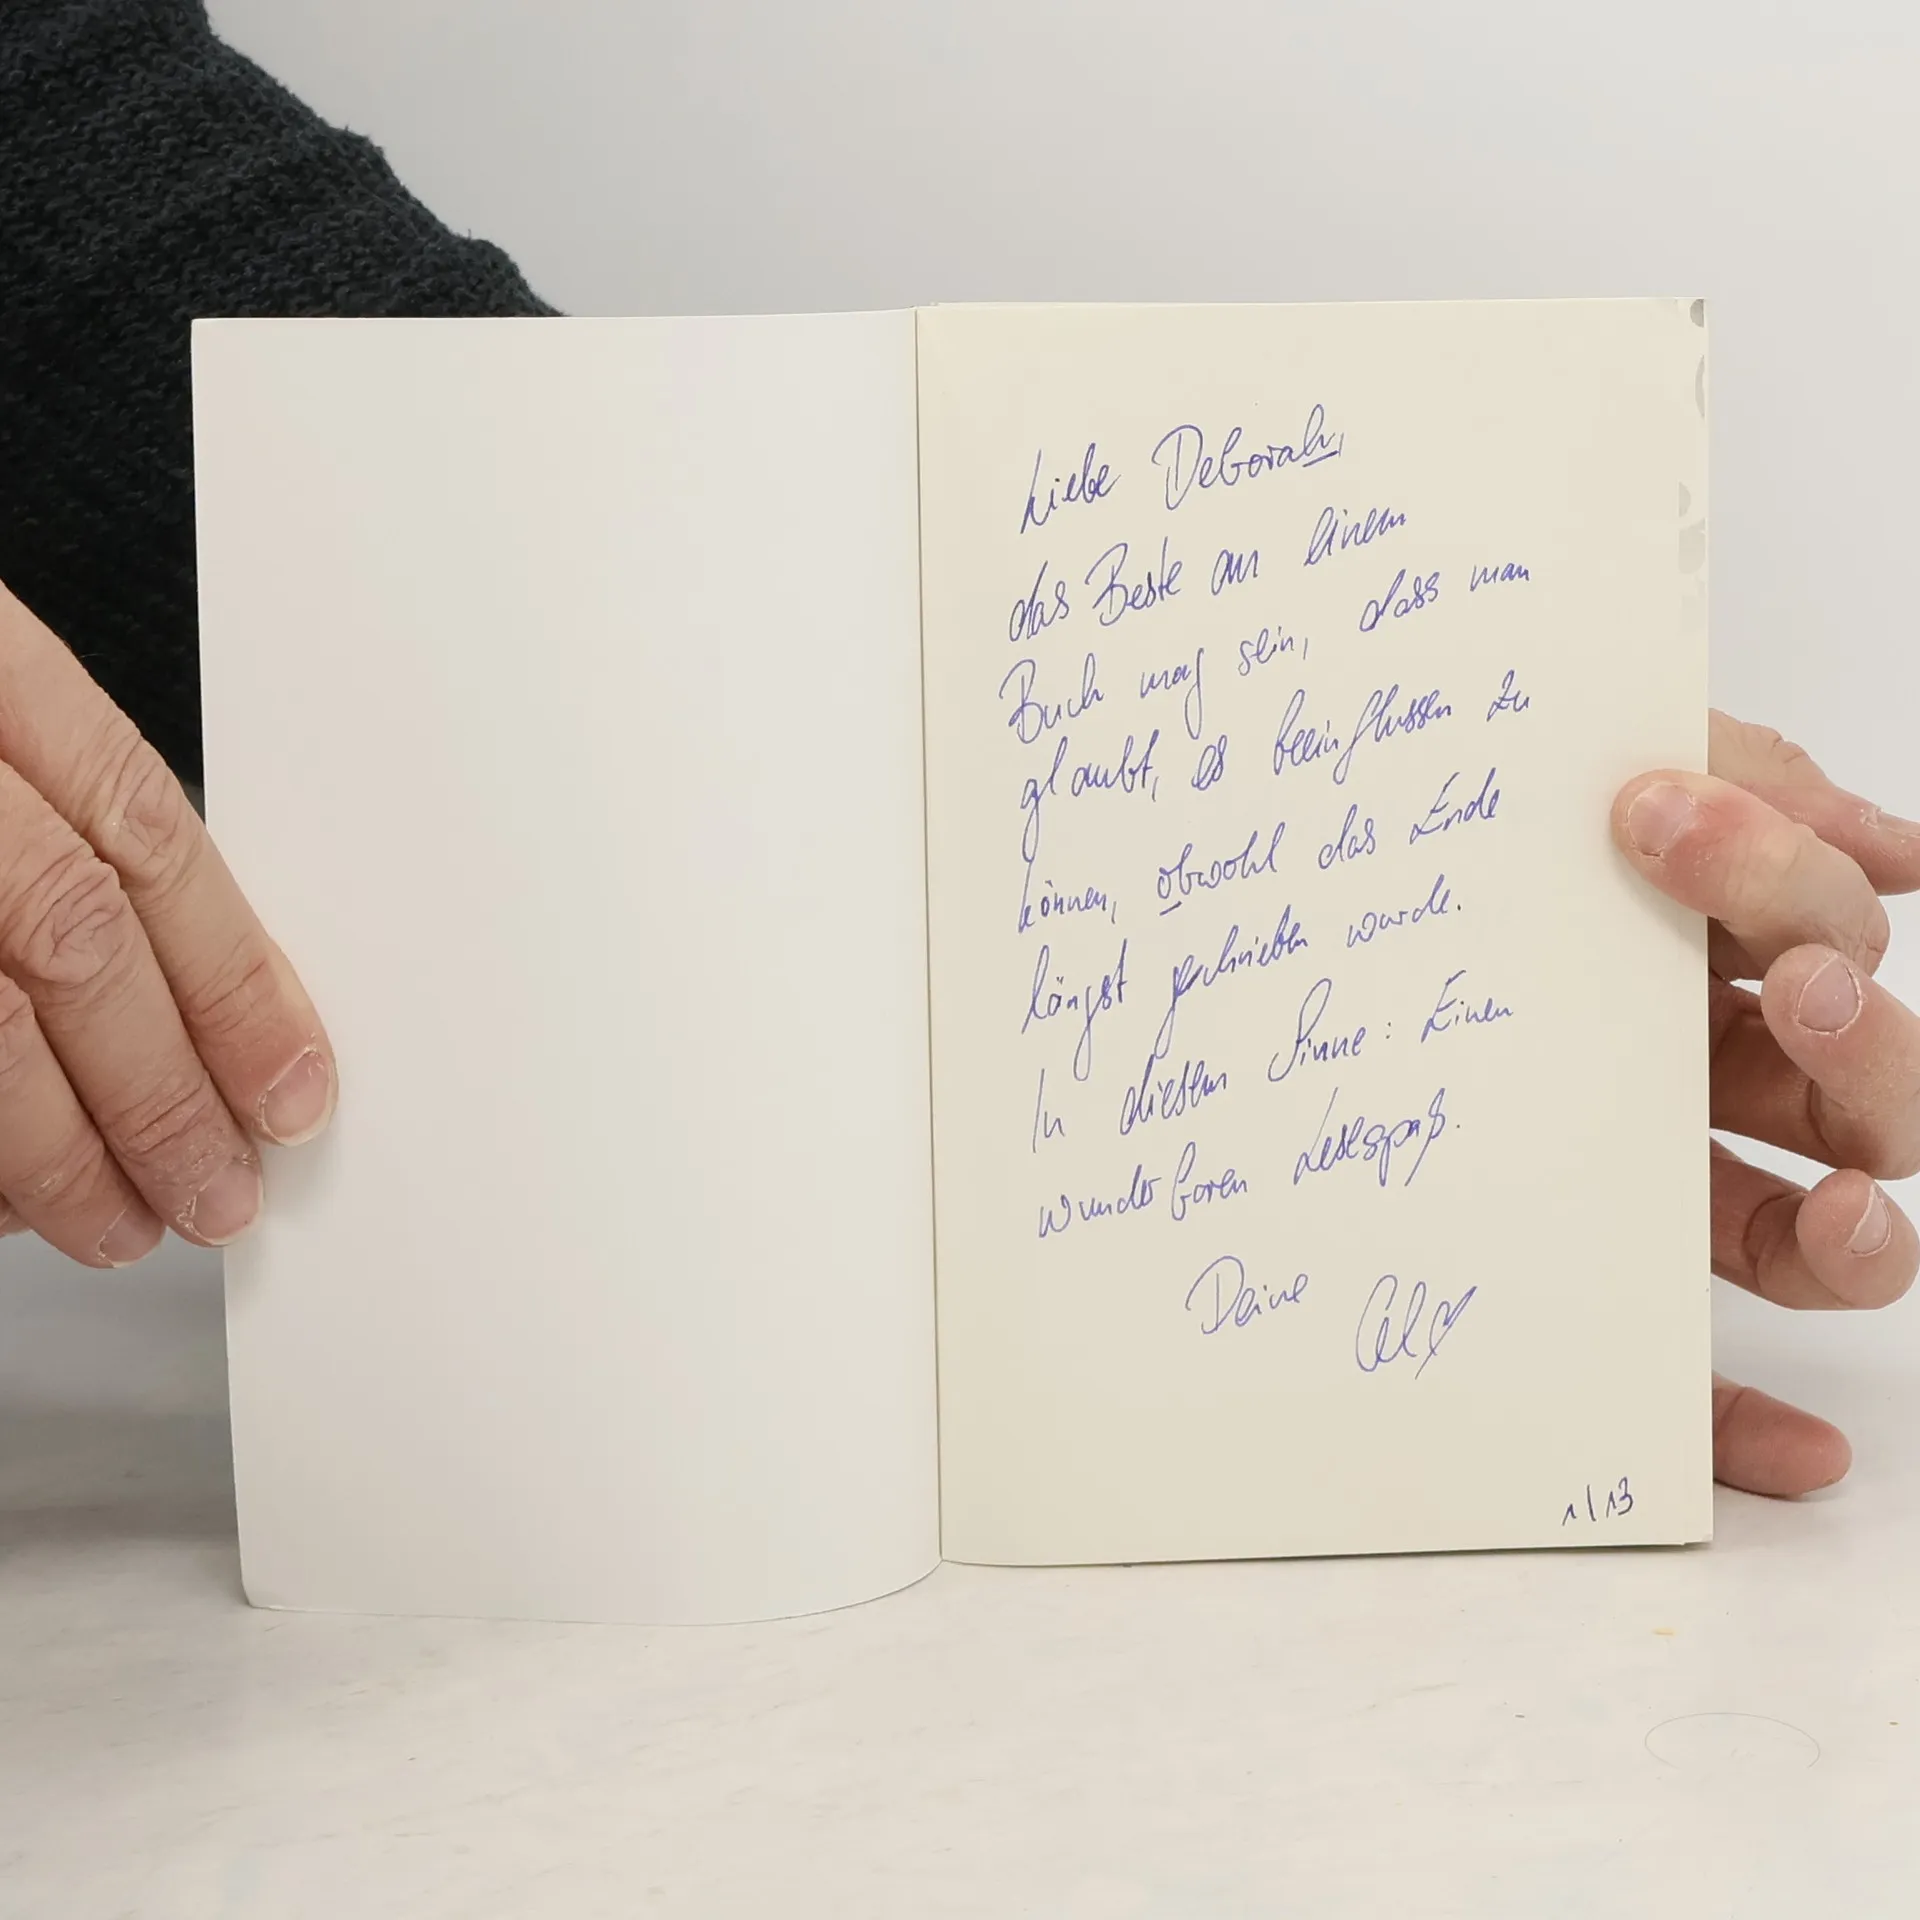 Liebe Deborah,
das Beste an einem
Buch mag sein, dass man
glaubt, es beeinflussen zu
können, obwohl das Ende
längst geschrieben wurde.
In diesem Sinne: Einen
wunderbaren Lesespaß.
Deine
1/13